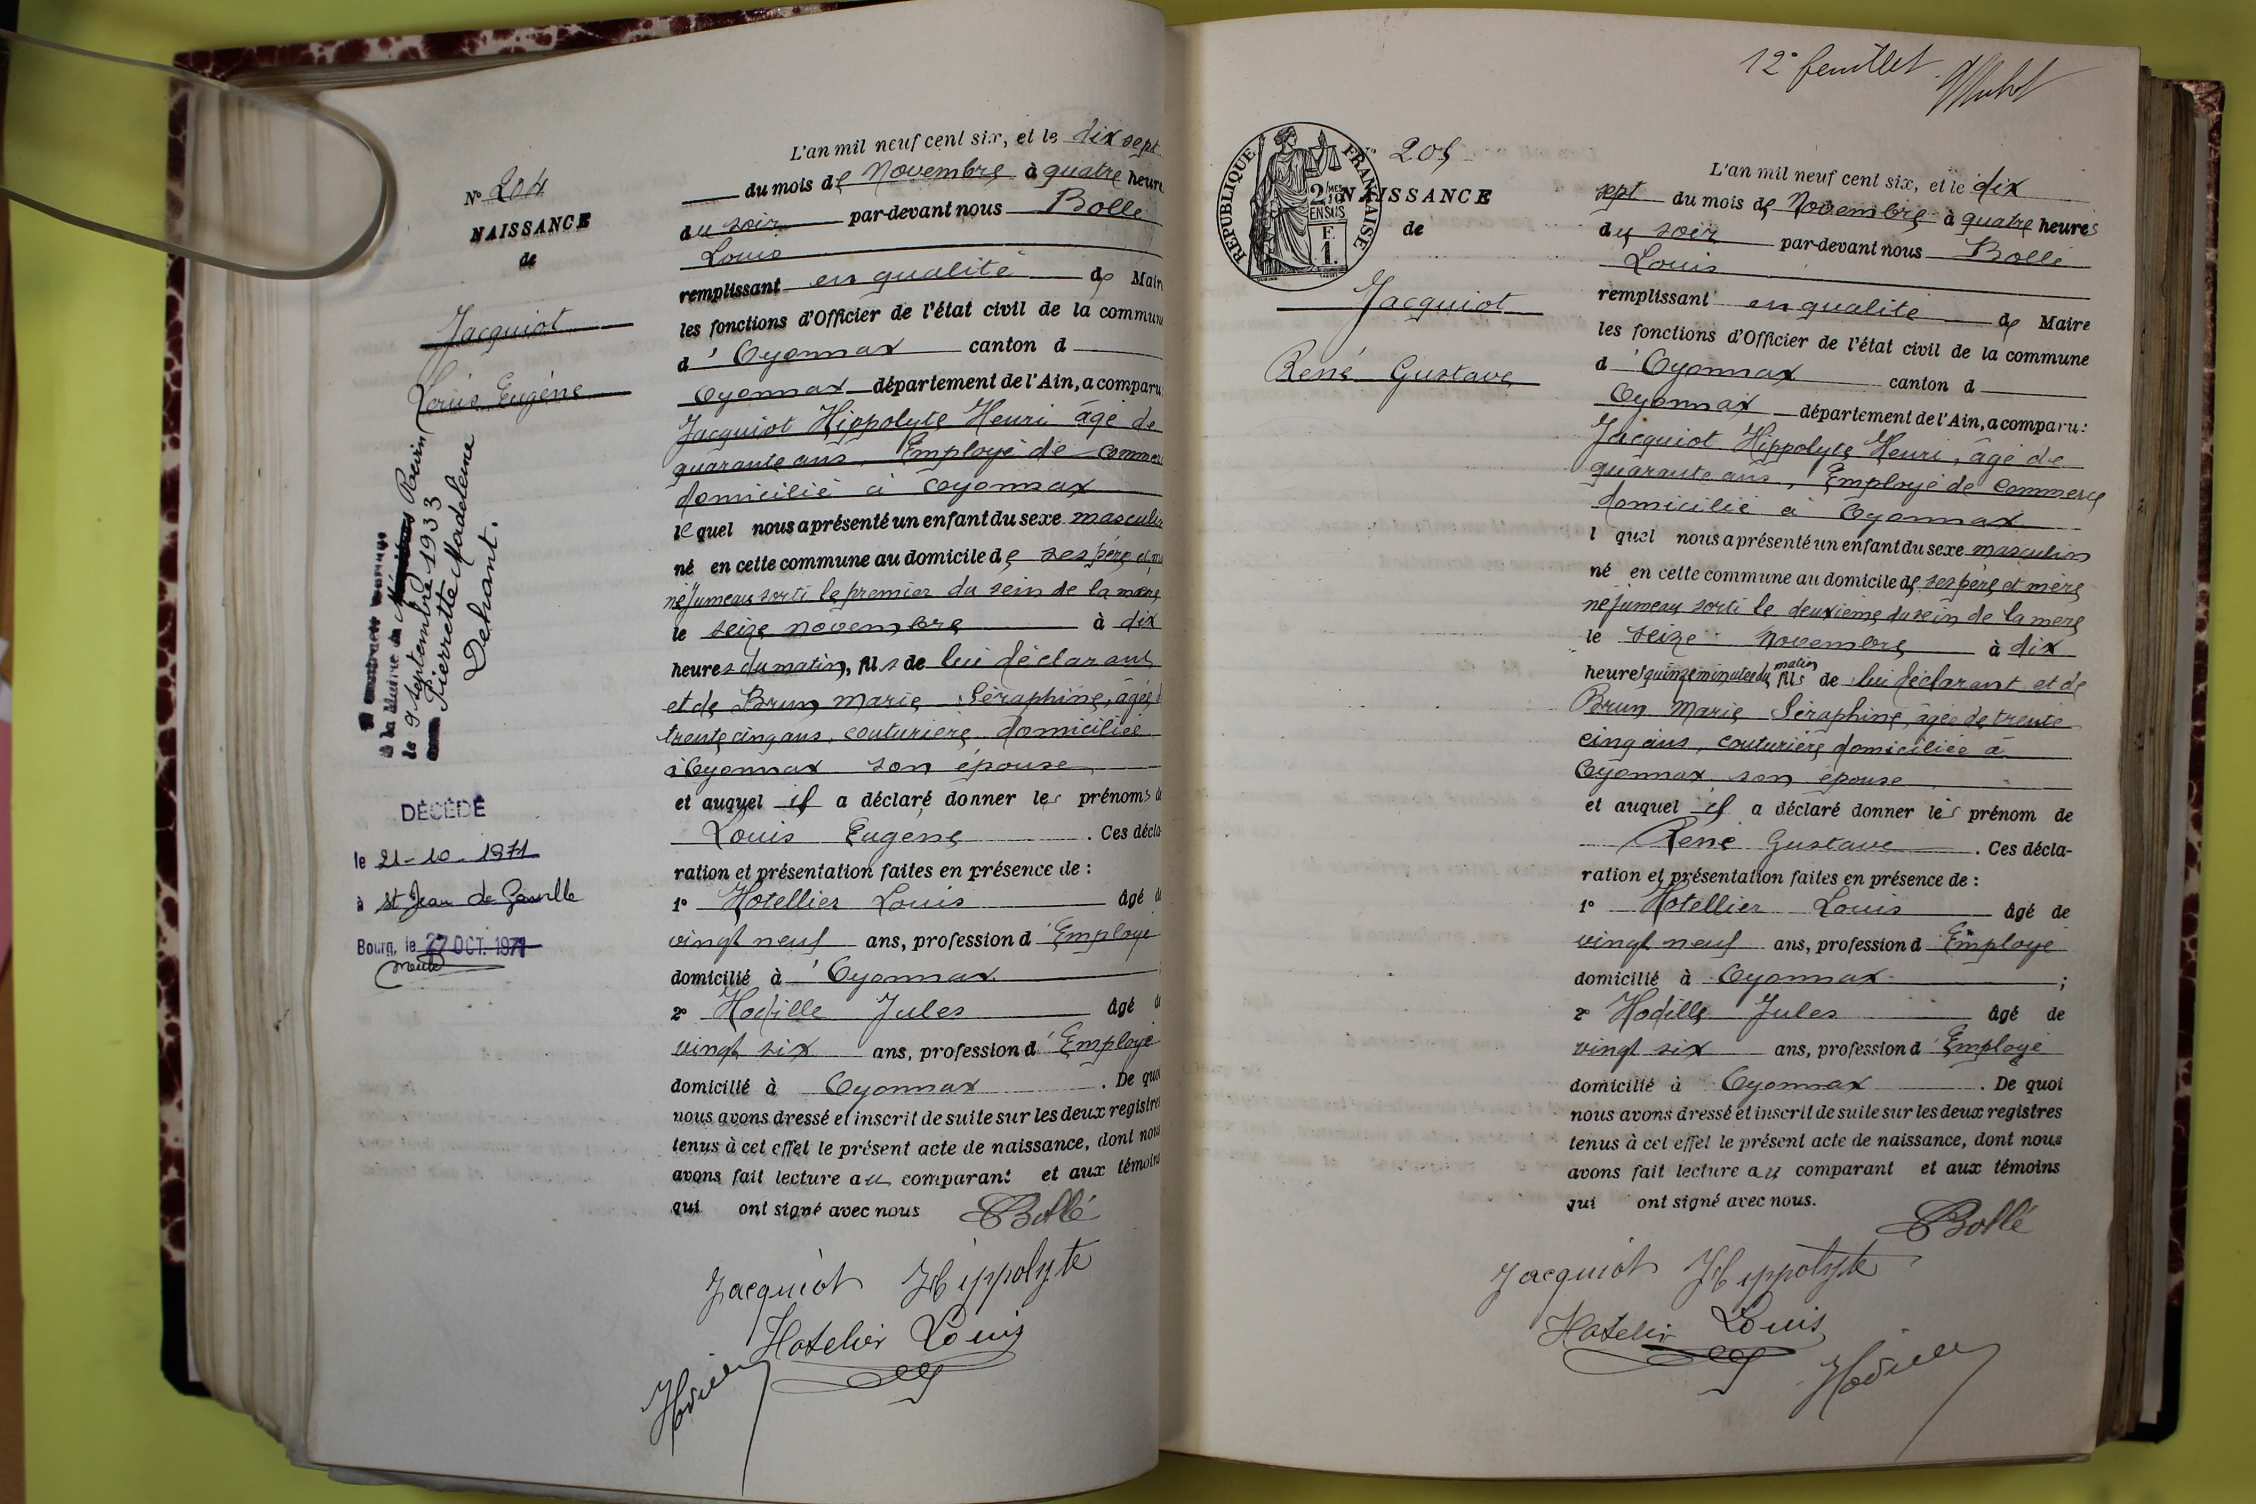 N° 204
NAISSANCE
de
Jacquiot
Louis Eugène
à la Mairie de
le 9 septembre 1933
Pierrette Madeleine
Dehant.
DÉCÉDÉ
le 21-10-1971
à St Jean de Gonville
Bourg, le 27 OCT. 1971
L'an mil neuf cent six, et le dix sept
du mois de Novembre à quatre heure
du soir par-devant nous Bollé
Louis
remplissant en qualité de Maire
les fonctions d'Officier de l'état civil de la commune
d'Oyonnax canton d
Oyonnax département de l'Ain, a comparu
Jacquiot Hippolyte Henri âgé de
quarante ans, Employé de commerce
domicilié à Oyonnax
lequel nous a présenté un enfant du sexe masculin
né en cette commune au domicile de ses père et m
né jumeau sorti le premier du sein de la mère
le seize novembre à dix
heures du matin, fils de lui déclarant
et de Brun Marie Séraphine, âgée d
trente cinq ans, couturière domiciliée
à Oyonnax son épouse
et auquel il a déclaré donner les prénoms d
Louis Eugène . Ces décla
ration et présentation faites en présence de :
1° Hotellier Louis âgé d
vingt neuf ans, profession d'Employé
domicilié à Oyonnax
2° Hodille Jules âgé d
vingt six ans, profession d'Employé
domicilié à Oyonnax . De quoi
nous avons dressé et inscrit de suite sur les deux registres
tenus à cet effet le présent acte de naissance, dont nous
avons fait lecture au comparant et aux témoins
qui ont signé avec nous Bollé
Jacquiot Hippolyte
Hotelier Louis
12e feuillet
RÉPUBLIQUE FRANÇAISE
2/MES 10 EN SUS
F 1.
N° 205
NAISSANCE
de
Jacquiot
René Gustave
L'an mil neuf cent six, et le dix
sept du mois de Novembre à quatre heures
du soir par-devant nous Bollé
Louis
remplissant en qualité de Maire
les fonctions d'Officier de l'état civil de la commune
d'Oyonnax canton d
Oyonnax département de l'Ain, a comparu :
Jacquiot Hippolyte Henri, âgé de
quarante ans, Employé de Commerce
domicilié à Oyonnax
l quel nous a présenté un enfant du sexe masculin
né en cette commune au domicile de ses père et mère
né jumeau sorti le deuxième du sein de la mère
le seize novembre à dix
heures quinze minutes du matin fils de lui déclarant et de
Brun Marie Séraphine, âgée de trente
cinq ans, couturière domiciliée à
Oyonnax son épouse
et auquel il a déclaré donner les prénom de
René Gustave . Ces décla-
ration et présentation faites en présence de :
1° Hotellier Louis âgé de
vingt neuf ans, profession d'Employé
domicilié à Oyonnax ;
2° Hodille Jules âgé de
vingt six ans, profession d'Employé
domicilié à Oyonnax . De quoi
nous avons dressé et inscrit de suite sur les deux registres
tenus à cet effet le présent acte de naissance, dont nous
avons fait lecture au comparant et aux témoins
qui ont signé avec nous.
Bollé
Jacquiot Hippolyte
Hotelir Louis